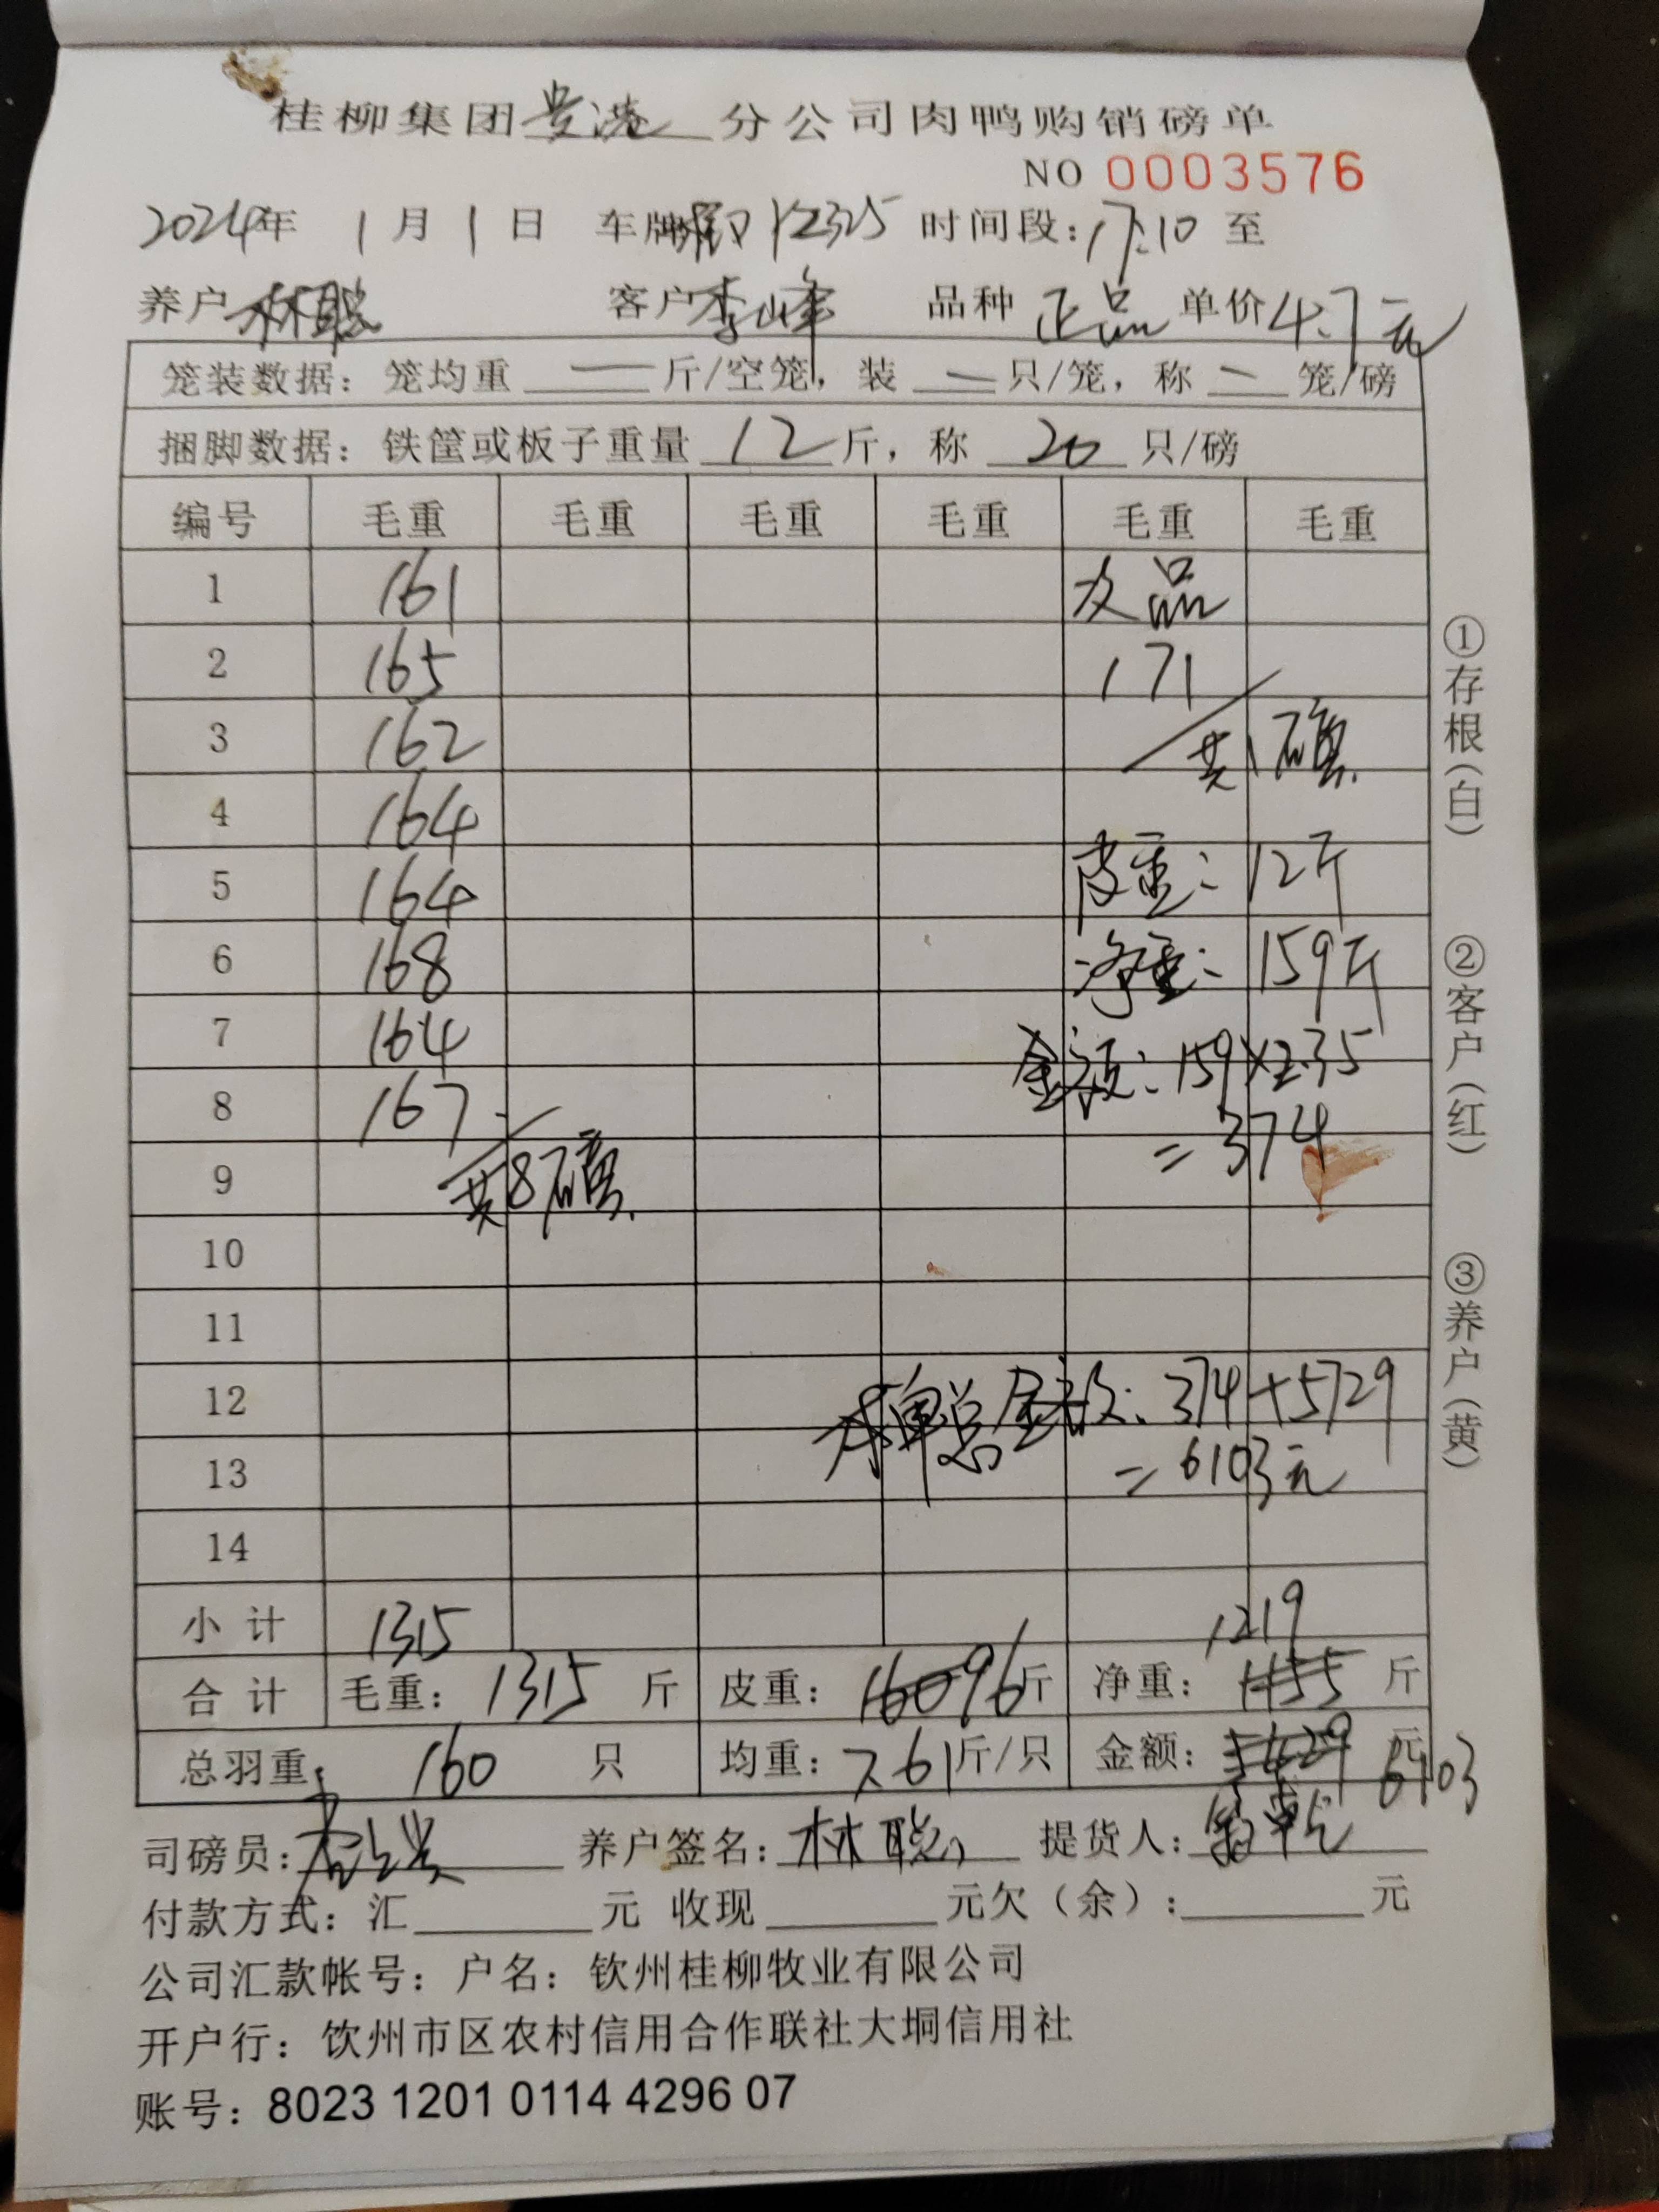 桂柳集团贵港分公司肉鸭购销磅单
NO 0003576
2024年 1月1日 车牌 12325 时间段:17:10 至
养户 林聪 客户 李峰 品种 正品 单价 4.7元
笼装数据: 笼均重 — 斤/空笼, 装 — 只/笼, 称 — 笼/磅
捆脚数据: 铁筐或板子重量 12 斤, 称 20 只/磅
编号 毛重 毛重 毛重 毛重 毛重 毛重
1 161 次品
2 165 171
3 162 共1磅
4 164
5 164 皮重: 12斤
6 168 净重: 159斤
7 164 金额: 159×2.35
8 167 =374
9 共8磅
10
11
12 本单总金额: 374+5729
13 =6103元
14
小计 1315 1219
合计 毛重: 1315 斤 皮重: 160 96斤 净重: 1155 斤
总羽重: 160 只 均重: 7.61斤/只 金额: 元 6103
司磅员: 养户签名: 林聪 提货人:
付款方式: 汇 元 收现 元欠(余): 元
公司汇款帐号: 户名: 钦州桂柳牧业有限公司
开户行: 饮州市区农村信用合作联社大垌信用社
账号: 8023 1201 0114 4296 07
①存根(白)
②客户(红)
③养户(黄)